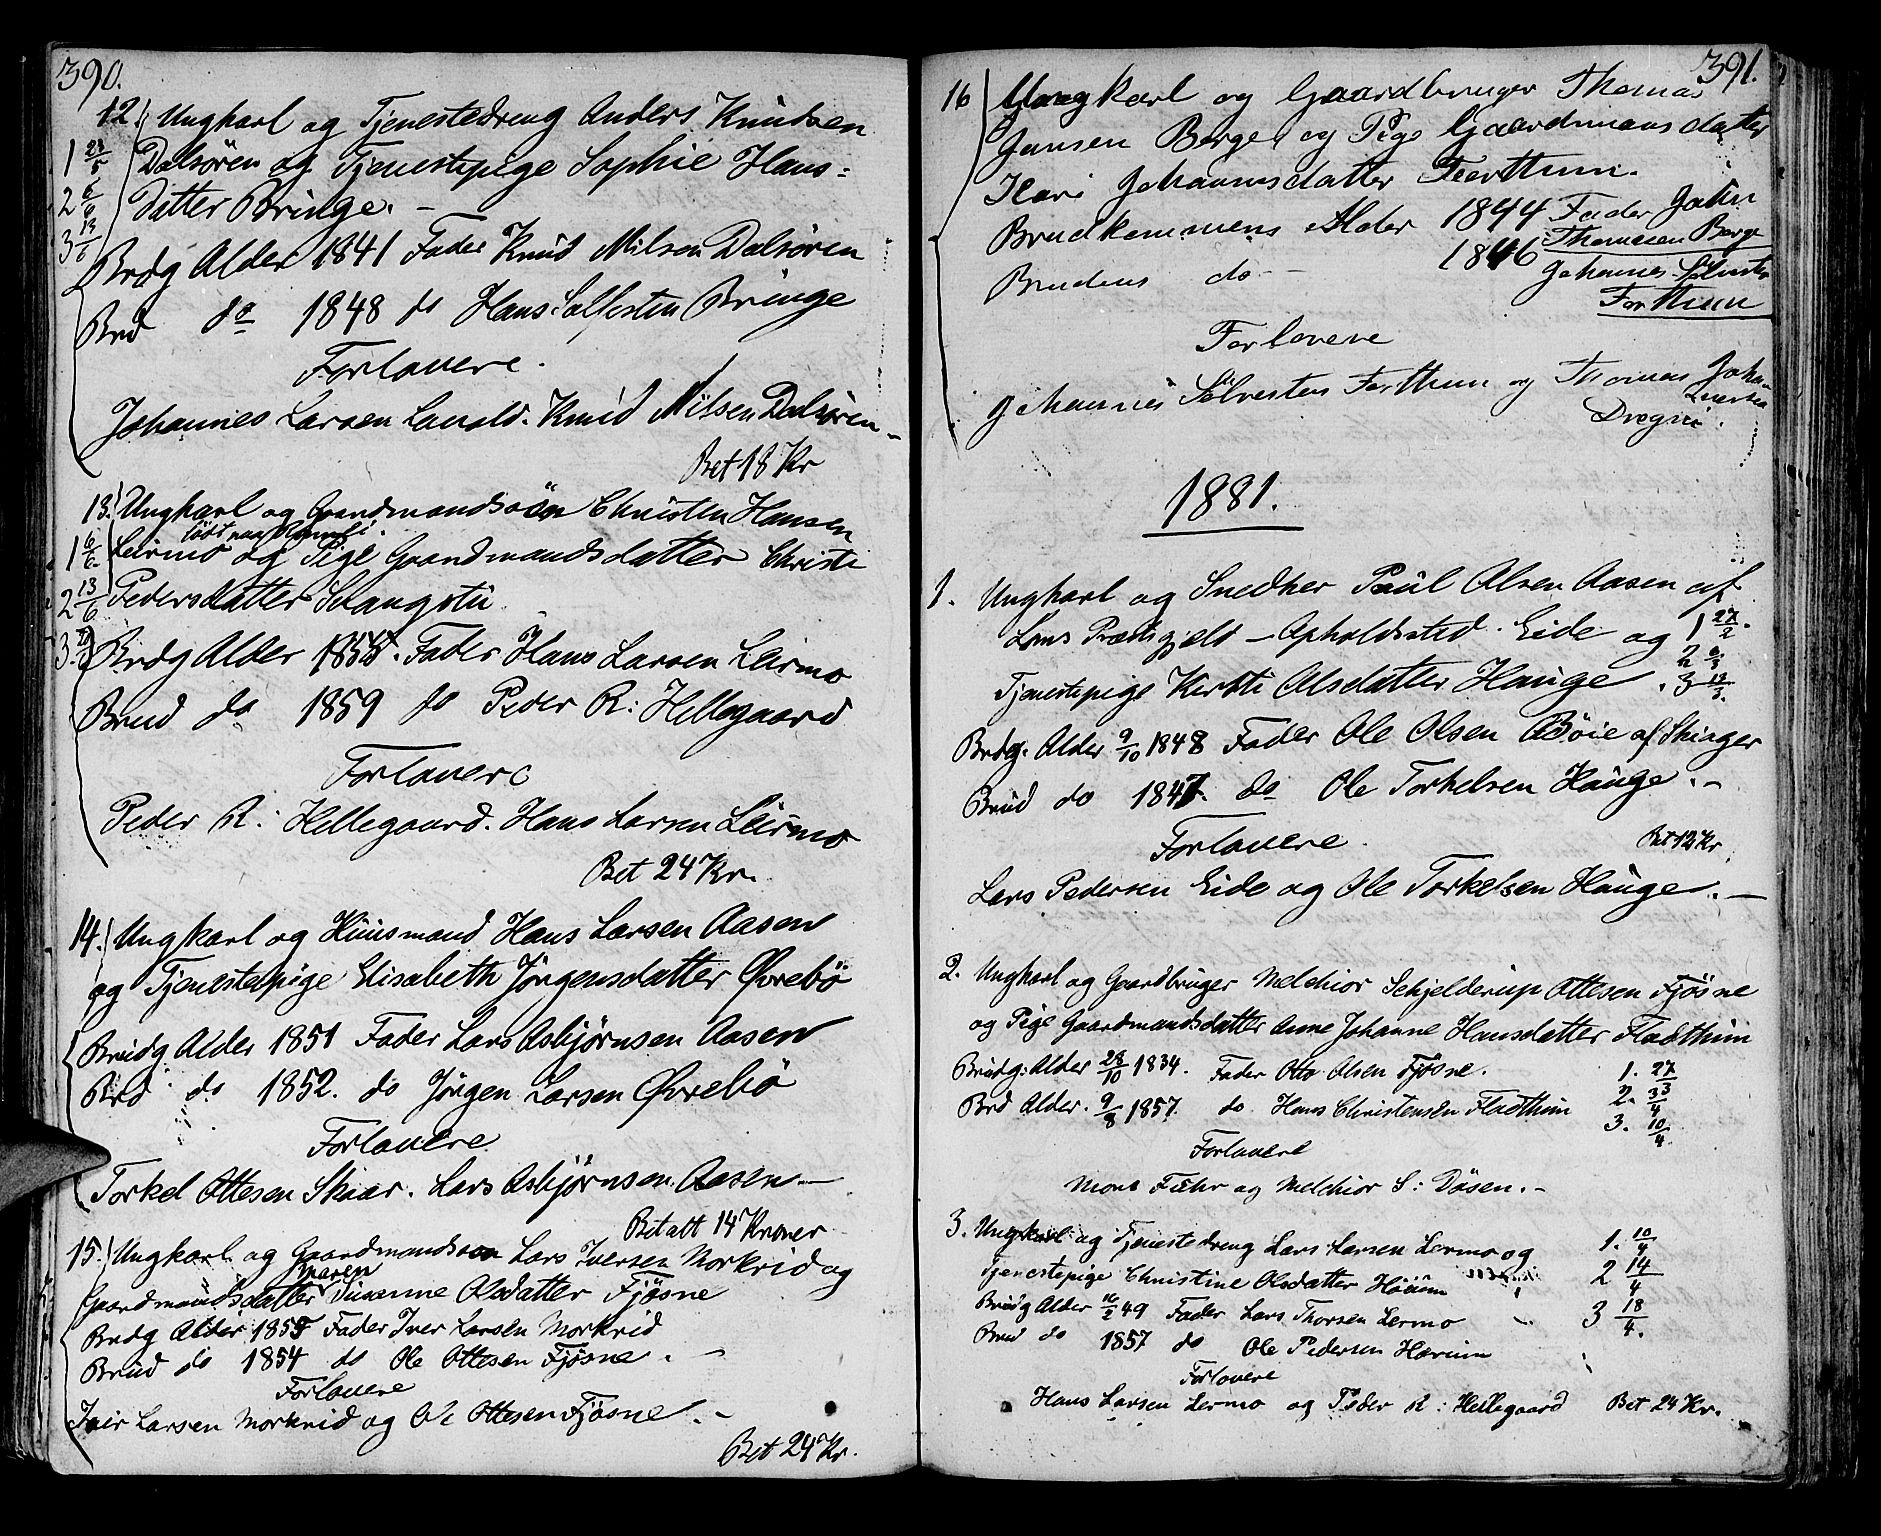 390.
12. Ungkarl og Tjenestedreng Anders Knudsen
1 29/5 Dalsøren og Tjenestepige Sophie Hans=
2 6/6 datter Bringe. –
3 13/6
Brdg Alder 1841 Fader Knud Nilsen Dalsøren
Brd do 1848 do Hans Bringe
Forlovere.
Johannes Larsen Knud Nilsen Dalsøren –
Bet 18 Kr
13. Ungkarl og Gaardmandssøn Christen Hansen
1 6/6 Leirmo og Pige Gaardmandsdatter Christi
2 13/6 Pedersdatter
3
Brdg Alder Fader Hans Larsen Leirmo
Brud do 1859 do Peder R: Hellegaard
Forlovere
Peder R: Hellegaard. Hans Larsen Leirmo
Bet 24 Kr.
14. Ungkarl og Huusmand Hans Larsen Aasen
og Tjenestepige Elisabeth Jørgensdatter Øvrebø
Brudg Alder 1851 Fader Lars Asbjørnsen Aasen
Brd do 1852. do Jørgen Larsen Øvrebø
Forlovere
Torkel Ottesen Skaar. Lars Asbjørnsen Aasen. –
Betalt 14 Kroner
15. Ungkarl og Gaardmandssøn Lars Iversen Morkrid og
Maren
Gaardmandsdatter Susanne Olsdatter Fjøsne
Brdg Alder 1855 Fader Iver Larsen Morkrid
Brud do 1854 do Ole Ottesen Fjøsne. –
Forlovere
Iver Larsen Morkrid og Ole Ottesen Fjøsne. –
Bet 24 Kr.
391.
16 Ungkarl og Gaardbruger Thomas
Jansen Berge, og Pige Gaardmandsdatter
Kari Johannesdatter Forthun.
Brudkommens Alder 1844 Fader John
Thomesen Berge
Brudens do – 1846 Johannes Sølvesten
Forthun
Forlovere
Johannes Sølvesten Forthun og Thomas Johan
Dregni.
1881.
1. Ungkarl og Snedker Paul Olsen Aasen af
Loms Præstegjeld – Opholdsted Eide og 1 27/2.
2 6/3
Tjenestepige Kersti Olsdatter Hauge. 3 13/3.
Brdg. Alder 9/10 1848 Fader Ole Olsen Bøie af Skiager
Brud do 1847. do Ole Torkelsen Hauge. –
Forlovere. Bet 12 Kr
Lars Pedersen Eide og Ole Torkelsen Hauge. –
2. Ungkarl og Gaardbruger Melchior Schjelderup Ottesen Fjøsne
og Pige Gaardmandsdatter Anne Johanne Hansdatter Fladthun
Brudg: Alder 28/10 1834. Fader Otto Olsen Fjøsne. 1. 27/3
Brd Alder. 9/8 1857. do Hans Christensen Fladthun 2. 3/4
3. 10/4.
Forlovere
Mons Fuhr og Melchior S: Døsen. –
3. Ungkarl og Tjenestedreng Lars Larsen Lermo og 1. 10/4
Tjenestepige Christine Olsdatter Høium 2 14/4
Brudg Alder 16/2 49 Fader Lars Thorsen Lermo 3 18/4.
Brud do 1857 do Ole Pedersen Høium
Forlovere
Hans Larsen Lermo og Peder R: Hellegaard Bet 24 Kr.